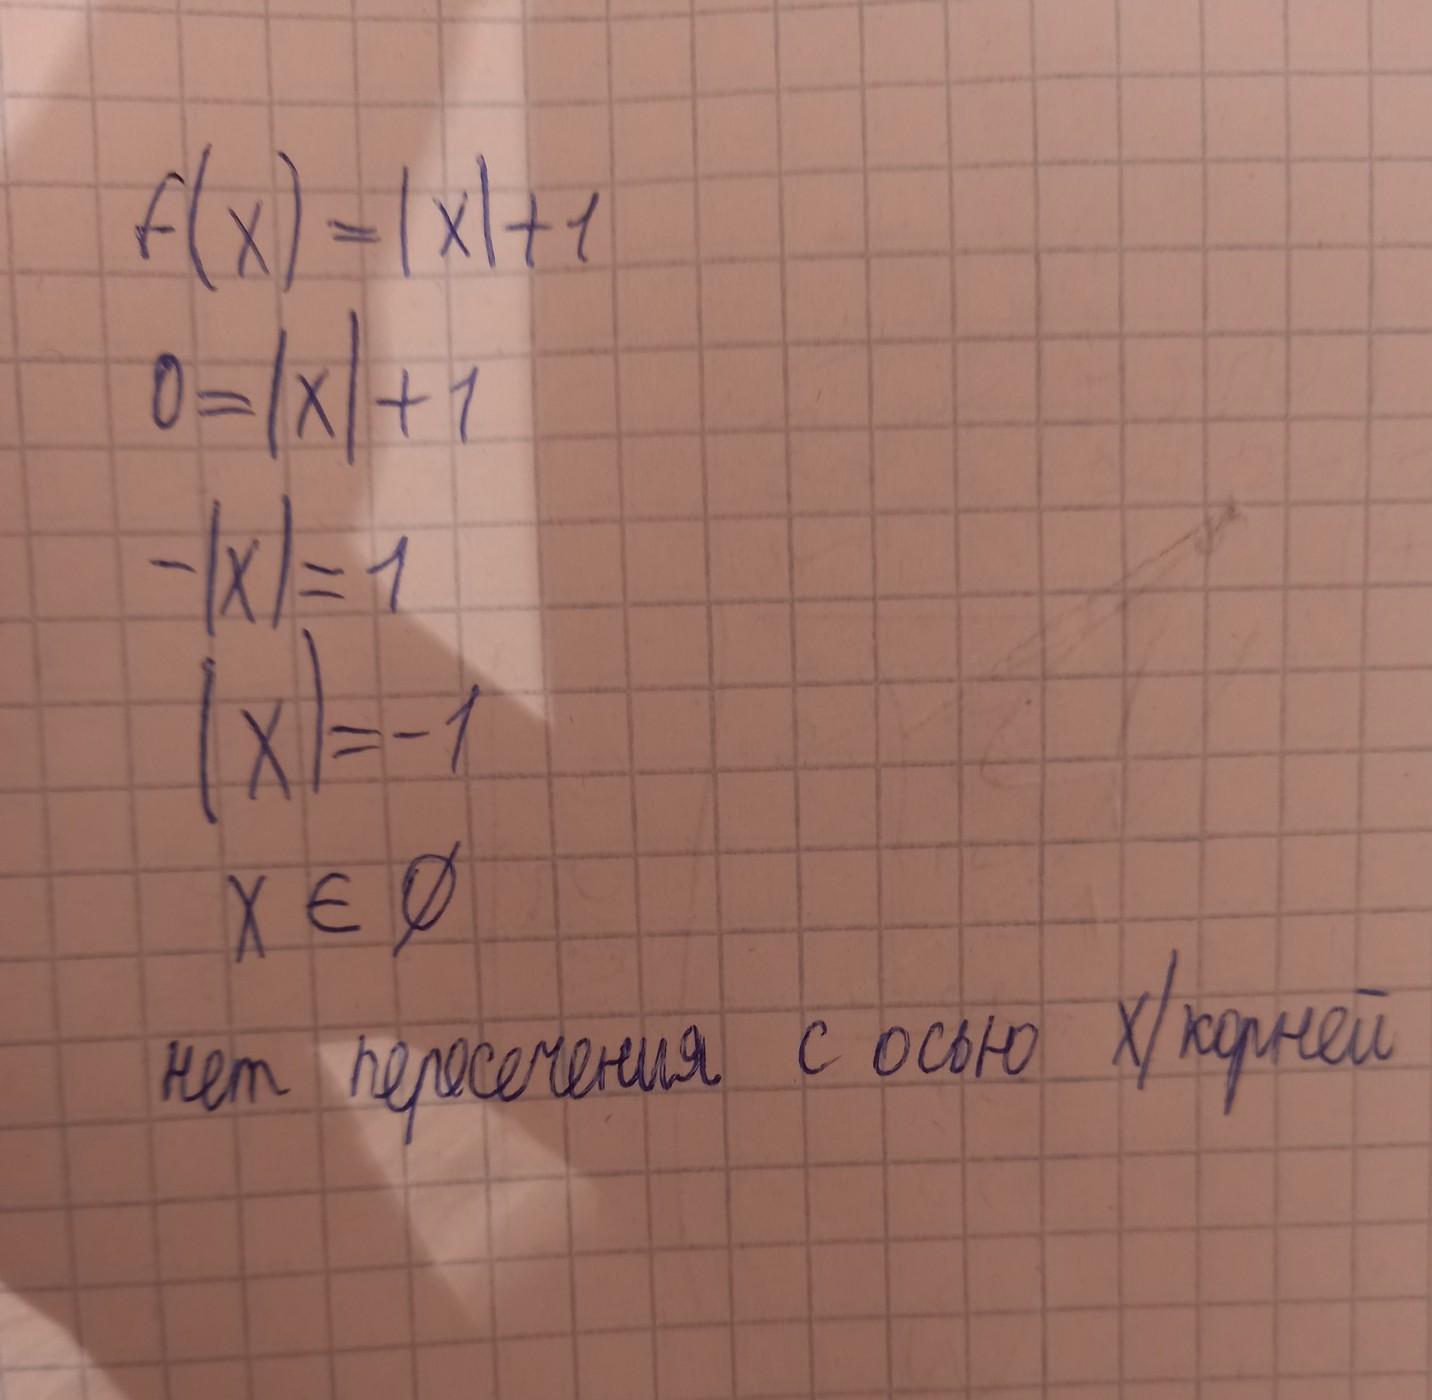 f(x)=|x|+1
0=|x|+1
-|x|=1
|x|=-1
x ∈ ∅
нет пересечения с осью x/корней